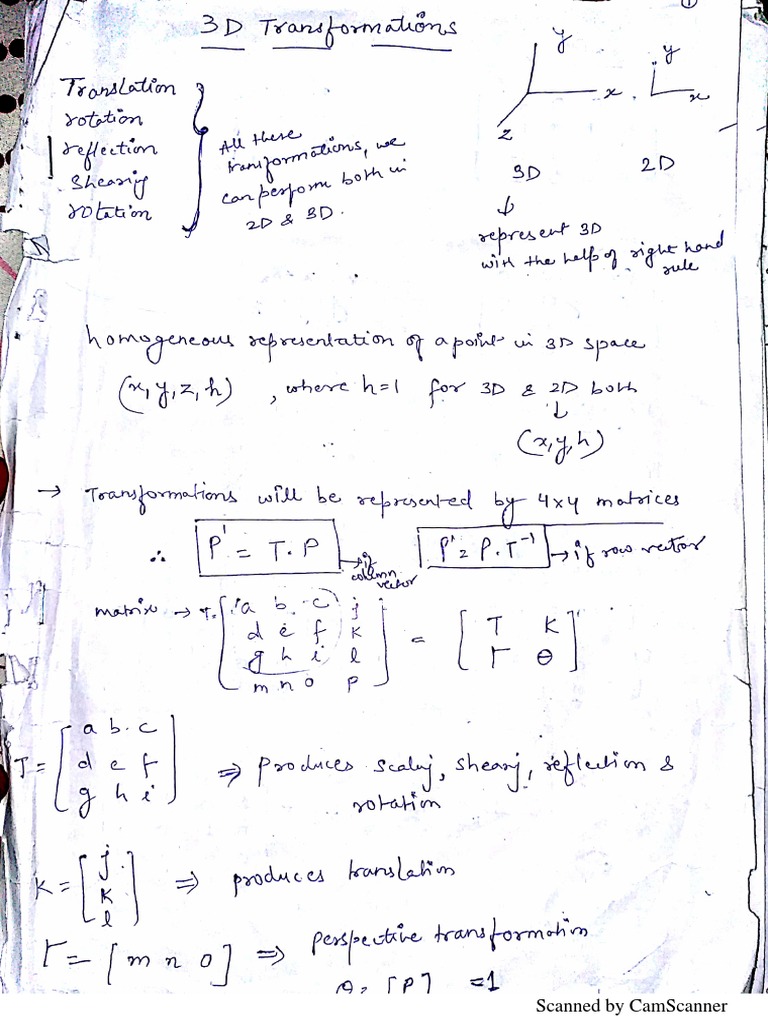 ①
3D Transformations
Translation
rotation
reflection
shearing
rotation
All these
transformations, we
can perform both in
2D & 3D.
y
x
z
3D
y
x
2D
↓
represent 3D
with the help of right hand
rule
homogeneous representation of a point in 3D space
(x, y, z, h) , where h=1 for 3D & 2D both
↓
(x, y, h)
→ Transformations will be represented by 4x4 matrices
∴ P' = T. P → if column vector
P' = P. T⁻¹ → if row vector
matrix → T. [a b c j
d e f k
g h i l
m n o p] = [T K
Γ θ]
T = [a b c
d e f
g h i] ⇒ produces scaling, shearing, reflection &
rotation
K = [j
k
l] ⇒ produces translation
Γ = [m n o] ⇒ perspective transformation
θ = [P] = 1
Scanned by CamScanner